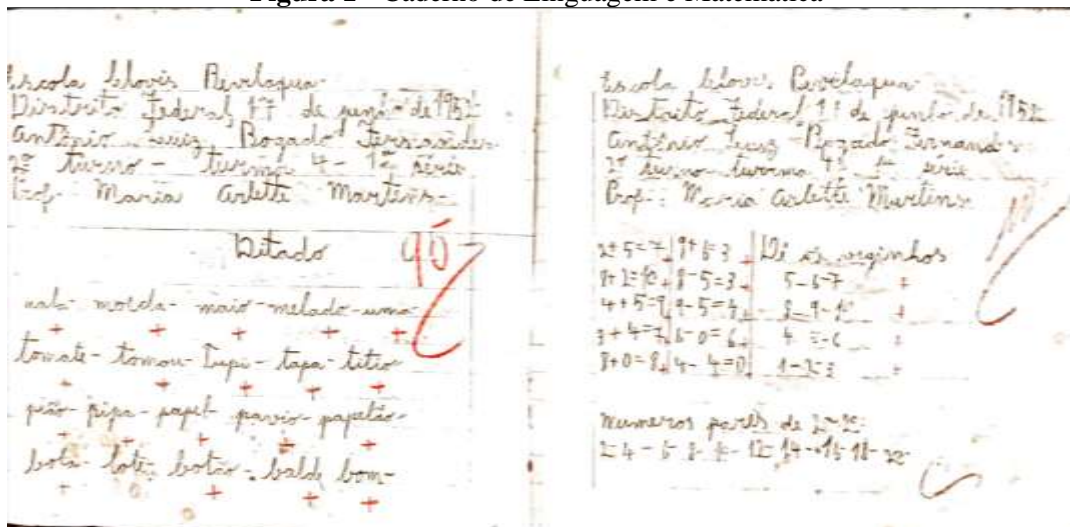 Figura 1 - Caderno de Linguagem e Matemática
Escola Clovis Bevilaqua
Distrito Federal, 17 de junho de 1952
Antônio Luiz Bogado Fernandes
2º turno - turma 4 - 1ª série
Prof. Maria Arlette Martins-
Ditado
90
moeda - maio - melado - uma
tomate - tomou - Tupi - tapa - titio
pião - pipa - papel - pavio - papelão -
bota - bote - botão - balde bom -
Escola Clovis Bevilaqua
Distrito Federal 11 de junho de 1952
Antônio Luiz Bogado Fernandes
2º turno - turma 4 1ª série
Prof.: Maria Arlette Martins
2+5=7 Dê os vizinhos
8+2=10 8-5=3 5-6-7
4+5=9 9-5=4
3+4=7 6-0=6
8+0=8 4-4=0 1-2-3
Numeros pares de
2-4-6-8- -12-14-16-18-